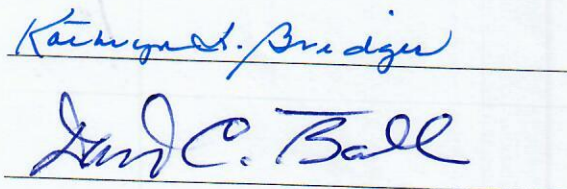 Kathryn L. Bridges
David C. Ball